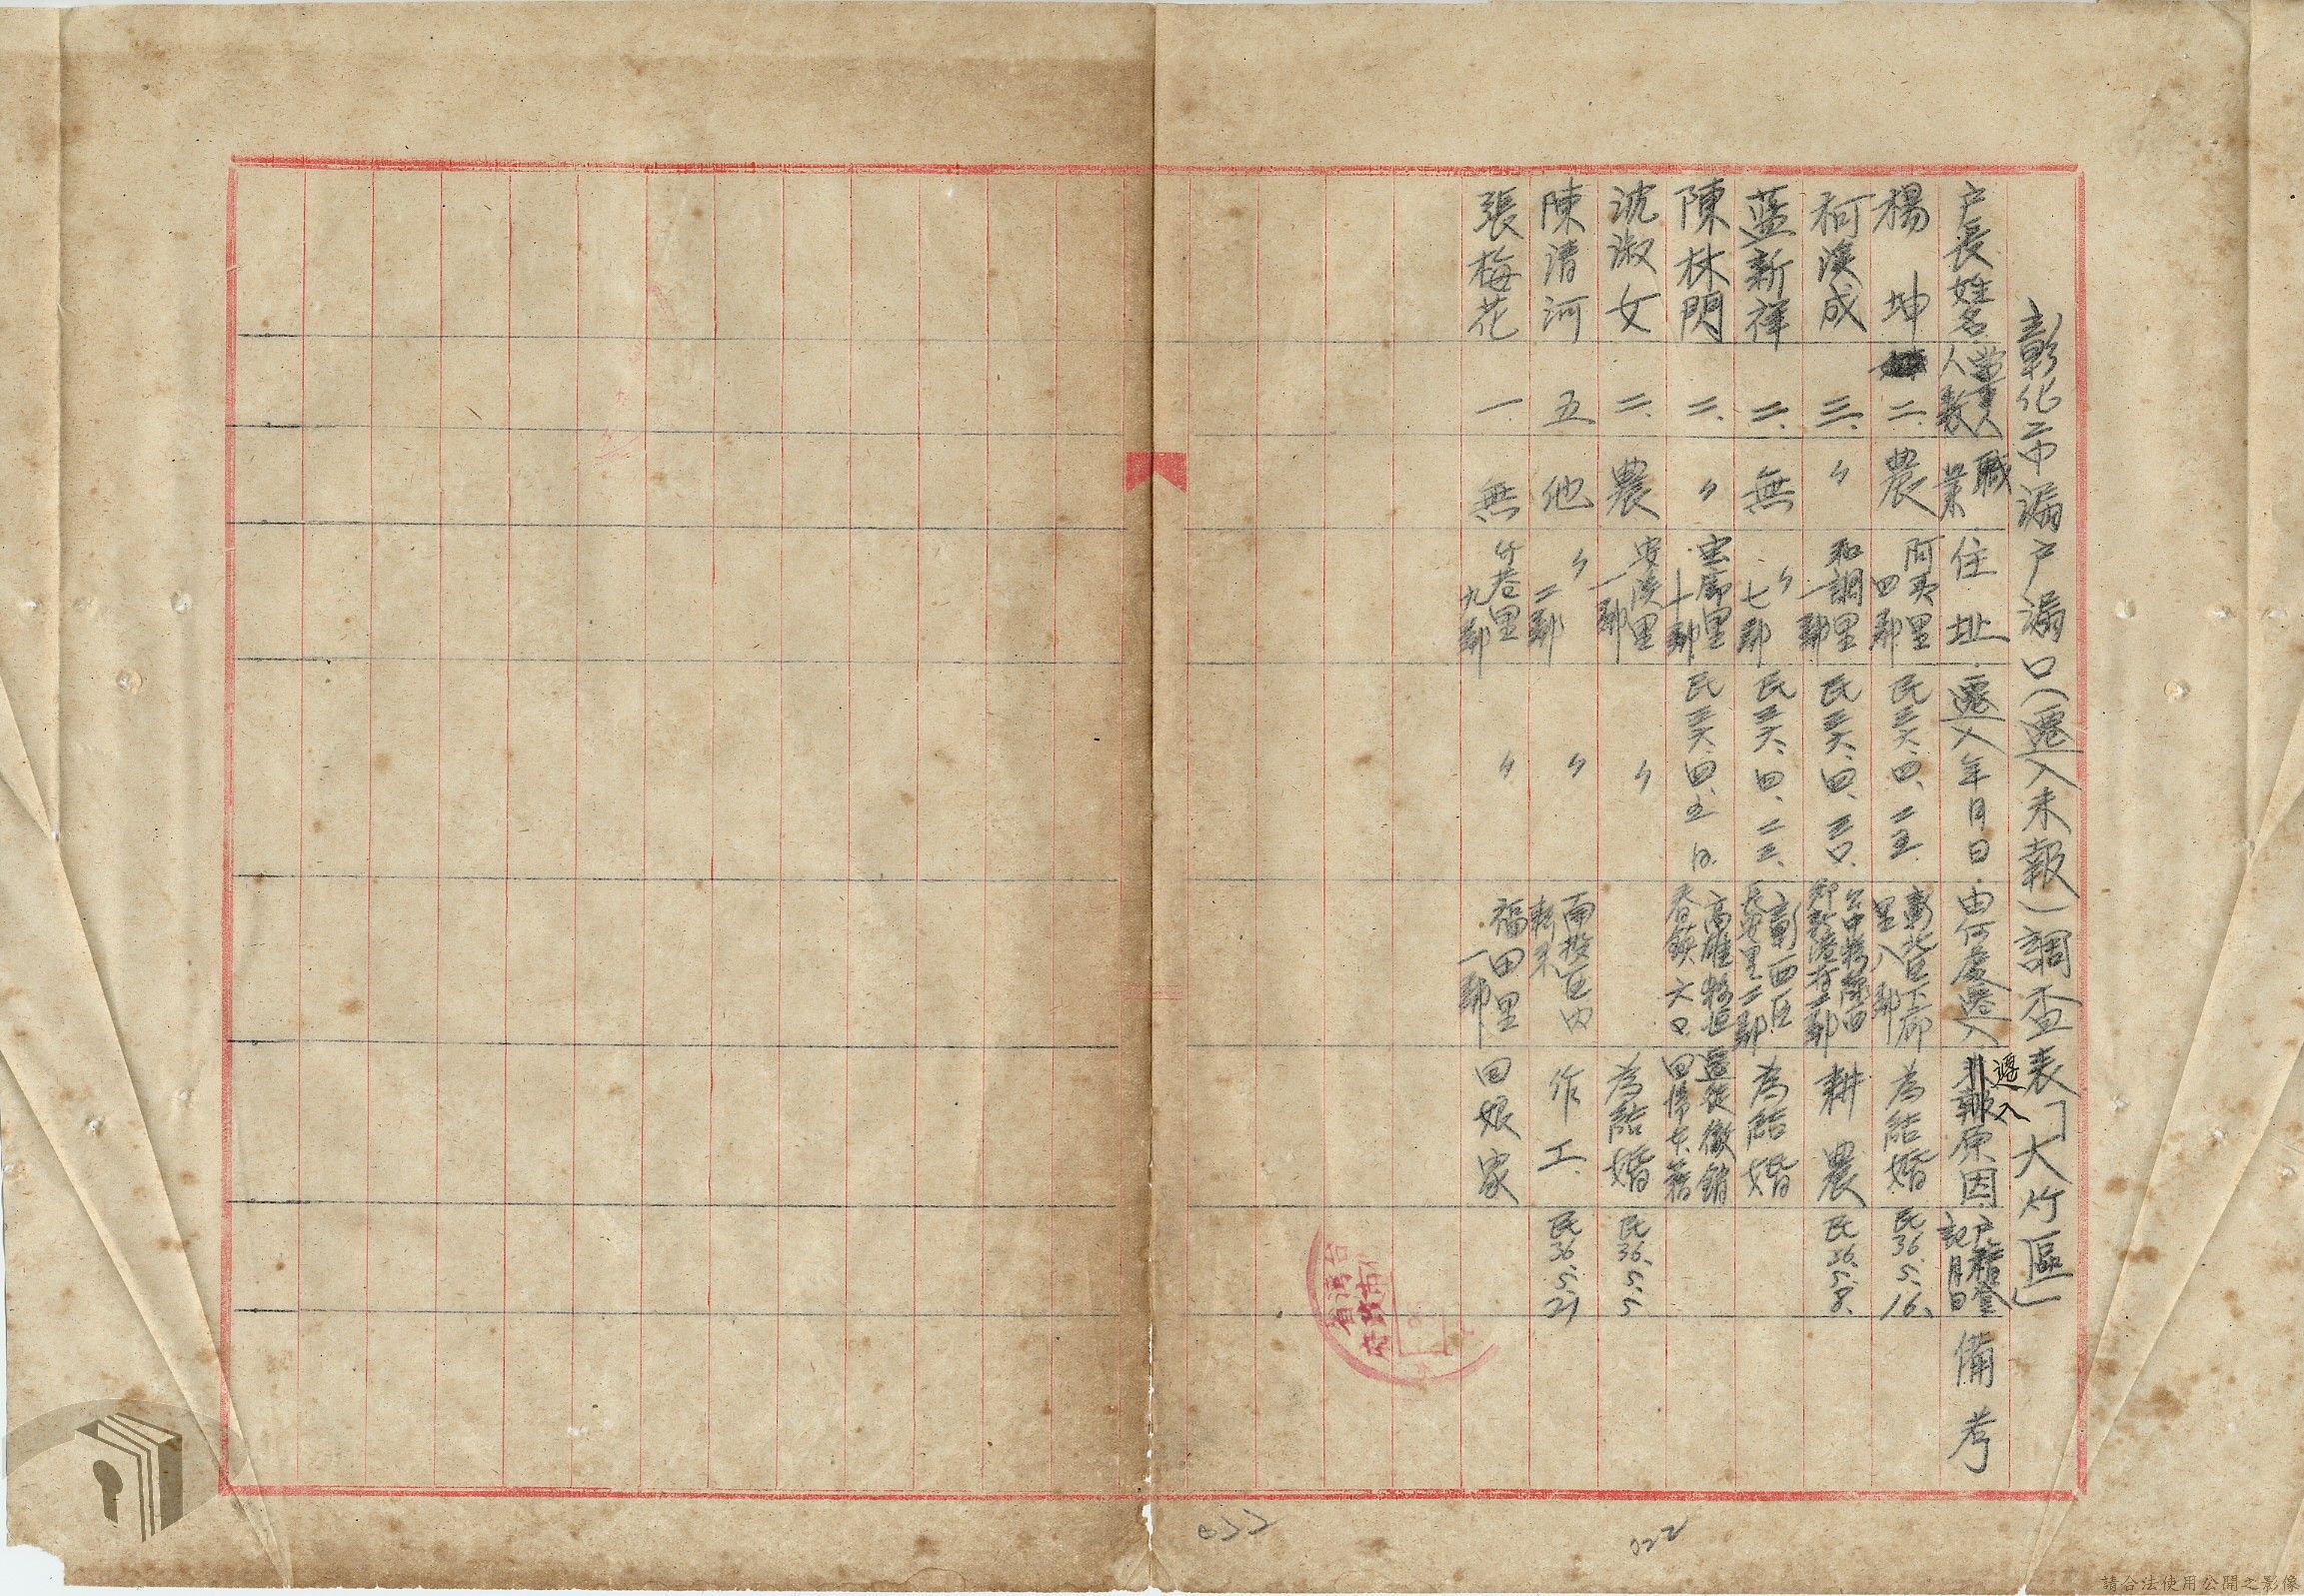 彰化市漏户漏口(遷入未報)調查表「大竹區」
户長姓名 當事人人數 職業 住址 遷入年月日 由何處遷入 遷入原因 户籍登記月日 備考
楊坤 二、 農 阿夷里四鄰 民三六、四、二五 為結婚 民36、5、16、
柯漢成 三、 〃 和調里一鄰 民三六、四、三〇、 耕農 民36、5、8、
藍新祥 二、 無 〃七鄰 民三六、四、二三、 彰西区長安里二鄰 為結婚
陳林閃 二、 〃 十鄰 民三六、四、五日
沈淑女 二、 農 安溪里一鄰 〃 為結婚 民36、5、5
陳清河 五 他 〃二鄰 〃 南投区内 作工、 民36、5、21
張梅花 一 無 竹巷里九鄰 〃 福田里一鄰 回娘家
022
022
請合法使用公開之影像